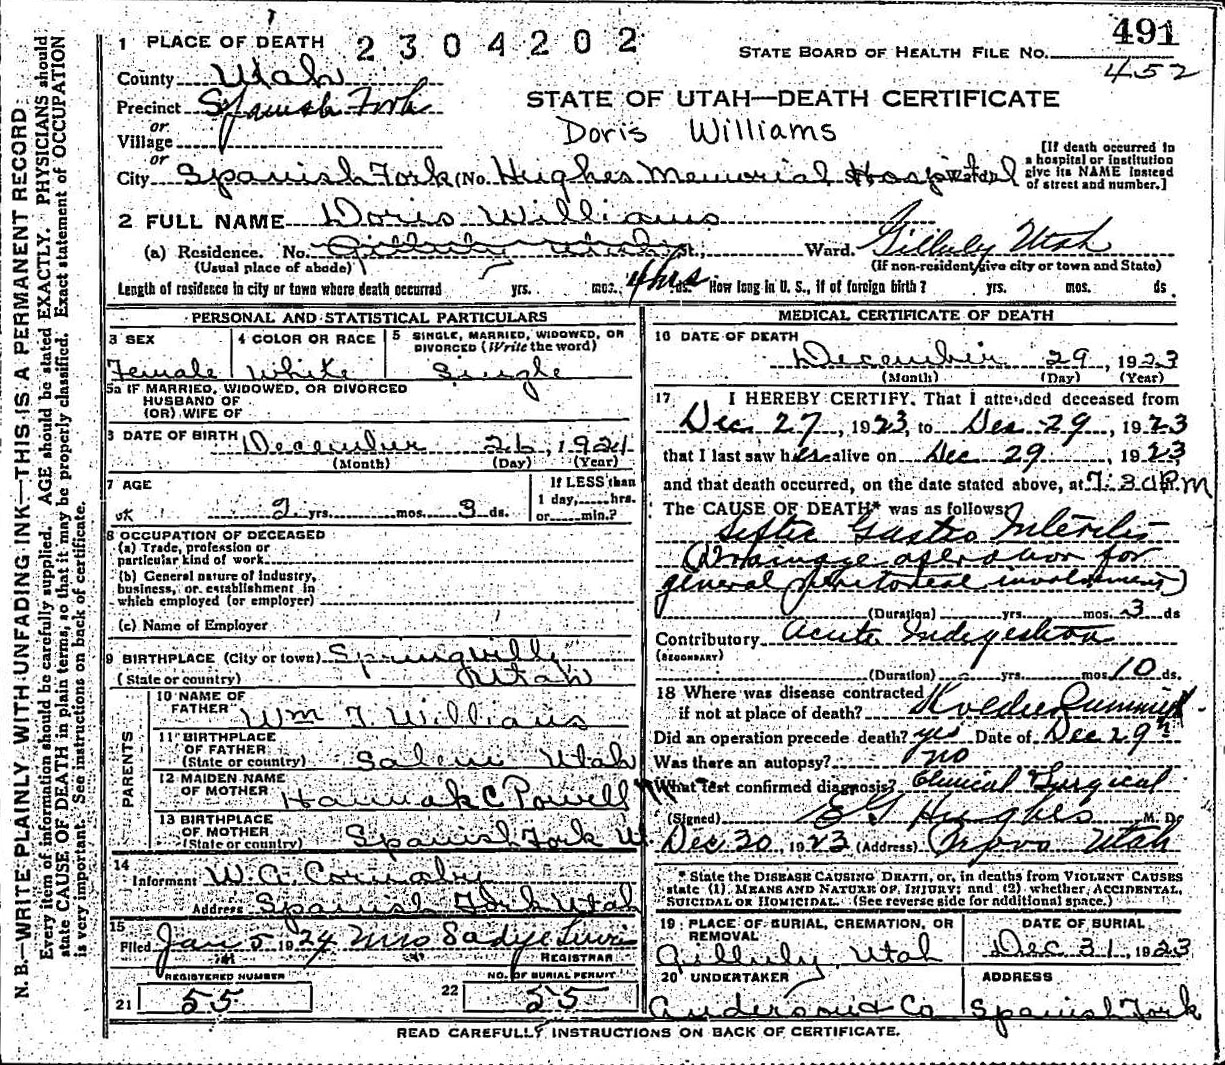 2304202
491
1 PLACE OF DEATH
STATE BOARD OF HEALTH FILE No.
452
County Utah
Precinct Spanish Fork
STATE OF UTAH—DEATH CERTIFICATE
or
Village
Doris Williams
or
City Spanish Fork (No. Hughes Memorial Hospital
[If death occurred in a hospital or institution give its NAME instead of street and number.]
2 FULL NAME Doris Williams
(a) Residence. No. Gilluly Utah St., Ward. Gilluly Utah
(Usual place of abode) (If non-resident give city or town and State)
Length of residence in city or town where death occurred yrs. mos. 4 hrs ds. How long in U. S., if of foreign birth? yrs. mos. ds.
PERSONAL AND STATISTICAL PARTICULARS
3 SEX
Female
4 COLOR OR RACE
White
5 SINGLE, MARRIED, WIDOWED, OR DIVORCED (Write the word)
Single
5a IF MARRIED, WIDOWED, OR DIVORCED
HUSBAND OF
(OR) WIFE OF
6 DATE OF BIRTH December 26, 1921
(Month) (Day) (Year)
7 AGE
OK 2 yrs. mos. 3 ds.
If LESS than
1 day, hrs.
or min.?
8 OCCUPATION OF DECEASED
(a) Trade, profession or
particular kind of work
(b) General nature of industry,
business, or establishment in
which employed (or employer)
(c) Name of Employer
9 BIRTHPLACE (City or town) Springville
(State or country) Utah
PARENTS
10 NAME OF
FATHER Wm J. Williams
11 BIRTHPLACE
OF FATHER
(State or country) Salem Utah
12 MAIDEN NAME
OF MOTHER Hannah C Powell
13 BIRTHPLACE
OF MOTHER
(State or country) Spanish Fork U.
14
Informant W. A.
Address Spanish Fork Utah
15
Filed Jan 5 1924 Mrs Sadye Lewis
REGISTRAR
REGISTERED NUMBER
NO. OF BURIAL PERMIT
21 55
22 55
MEDICAL CERTIFICATE OF DEATH
16 DATE OF DEATH
December 29, 1923
(Month) (Day) (Year)
17 I HEREBY CERTIFY, That I attended deceased from
Dec 27, 1923, to Dec 29, 1923
that I last saw her alive on Dec 29, 1923,
and that death occurred, on the date stated above, at 7:30 P.m
The CAUSE OF DEATH* was as follows:
Septic Gastro Interitis
(Drainage operation for
general peritoneal involvement)
(Duration) yrs. mos. 3 ds
Contributory Acute Indigestion
(SECONDARY)
(Duration) yrs. mos. 10 ds.
18 Where was disease contracted
if not at place of death? Summit
Did an operation precede death? yes Date of Dec 29th
Was there an autopsy? no
What test confirmed diagnosis? Clinical Surgical
(Signed) E G Hughes M. D.
Dec 30, 1923 (Address) Provo Utah
* State the DISEASE CAUSING DEATH, or, in deaths from VIOLENT CAUSES
state (1) MEANS AND NATURE OF INJURY; and (2) whether ACCIDENTAL,
SUICIDAL OR HOMICIDAL. (See reverse side for additional space.)
19 PLACE OF BURIAL, CREMATION, OR
REMOVAL
Gilluly, Utah
DATE OF BURIAL
Dec 31, 1923
20 UNDERTAKER
Anderson & Co
ADDRESS
Spanish Fork
READ CAREFULLY INSTRUCTIONS ON BACK OF CERTIFICATE.
N. B.—WRITE PLAINLY WITH UNFADING INK—THIS IS A PERMANENT RECORD
Every item of information should be carefully supplied. AGE should be stated EXACTLY. PHYSICIANS should
state CAUSE OF DEATH in plain terms, so that it may be properly classified. Exact statement of OCCUPATION
is very important. See instructions on back of certificate.